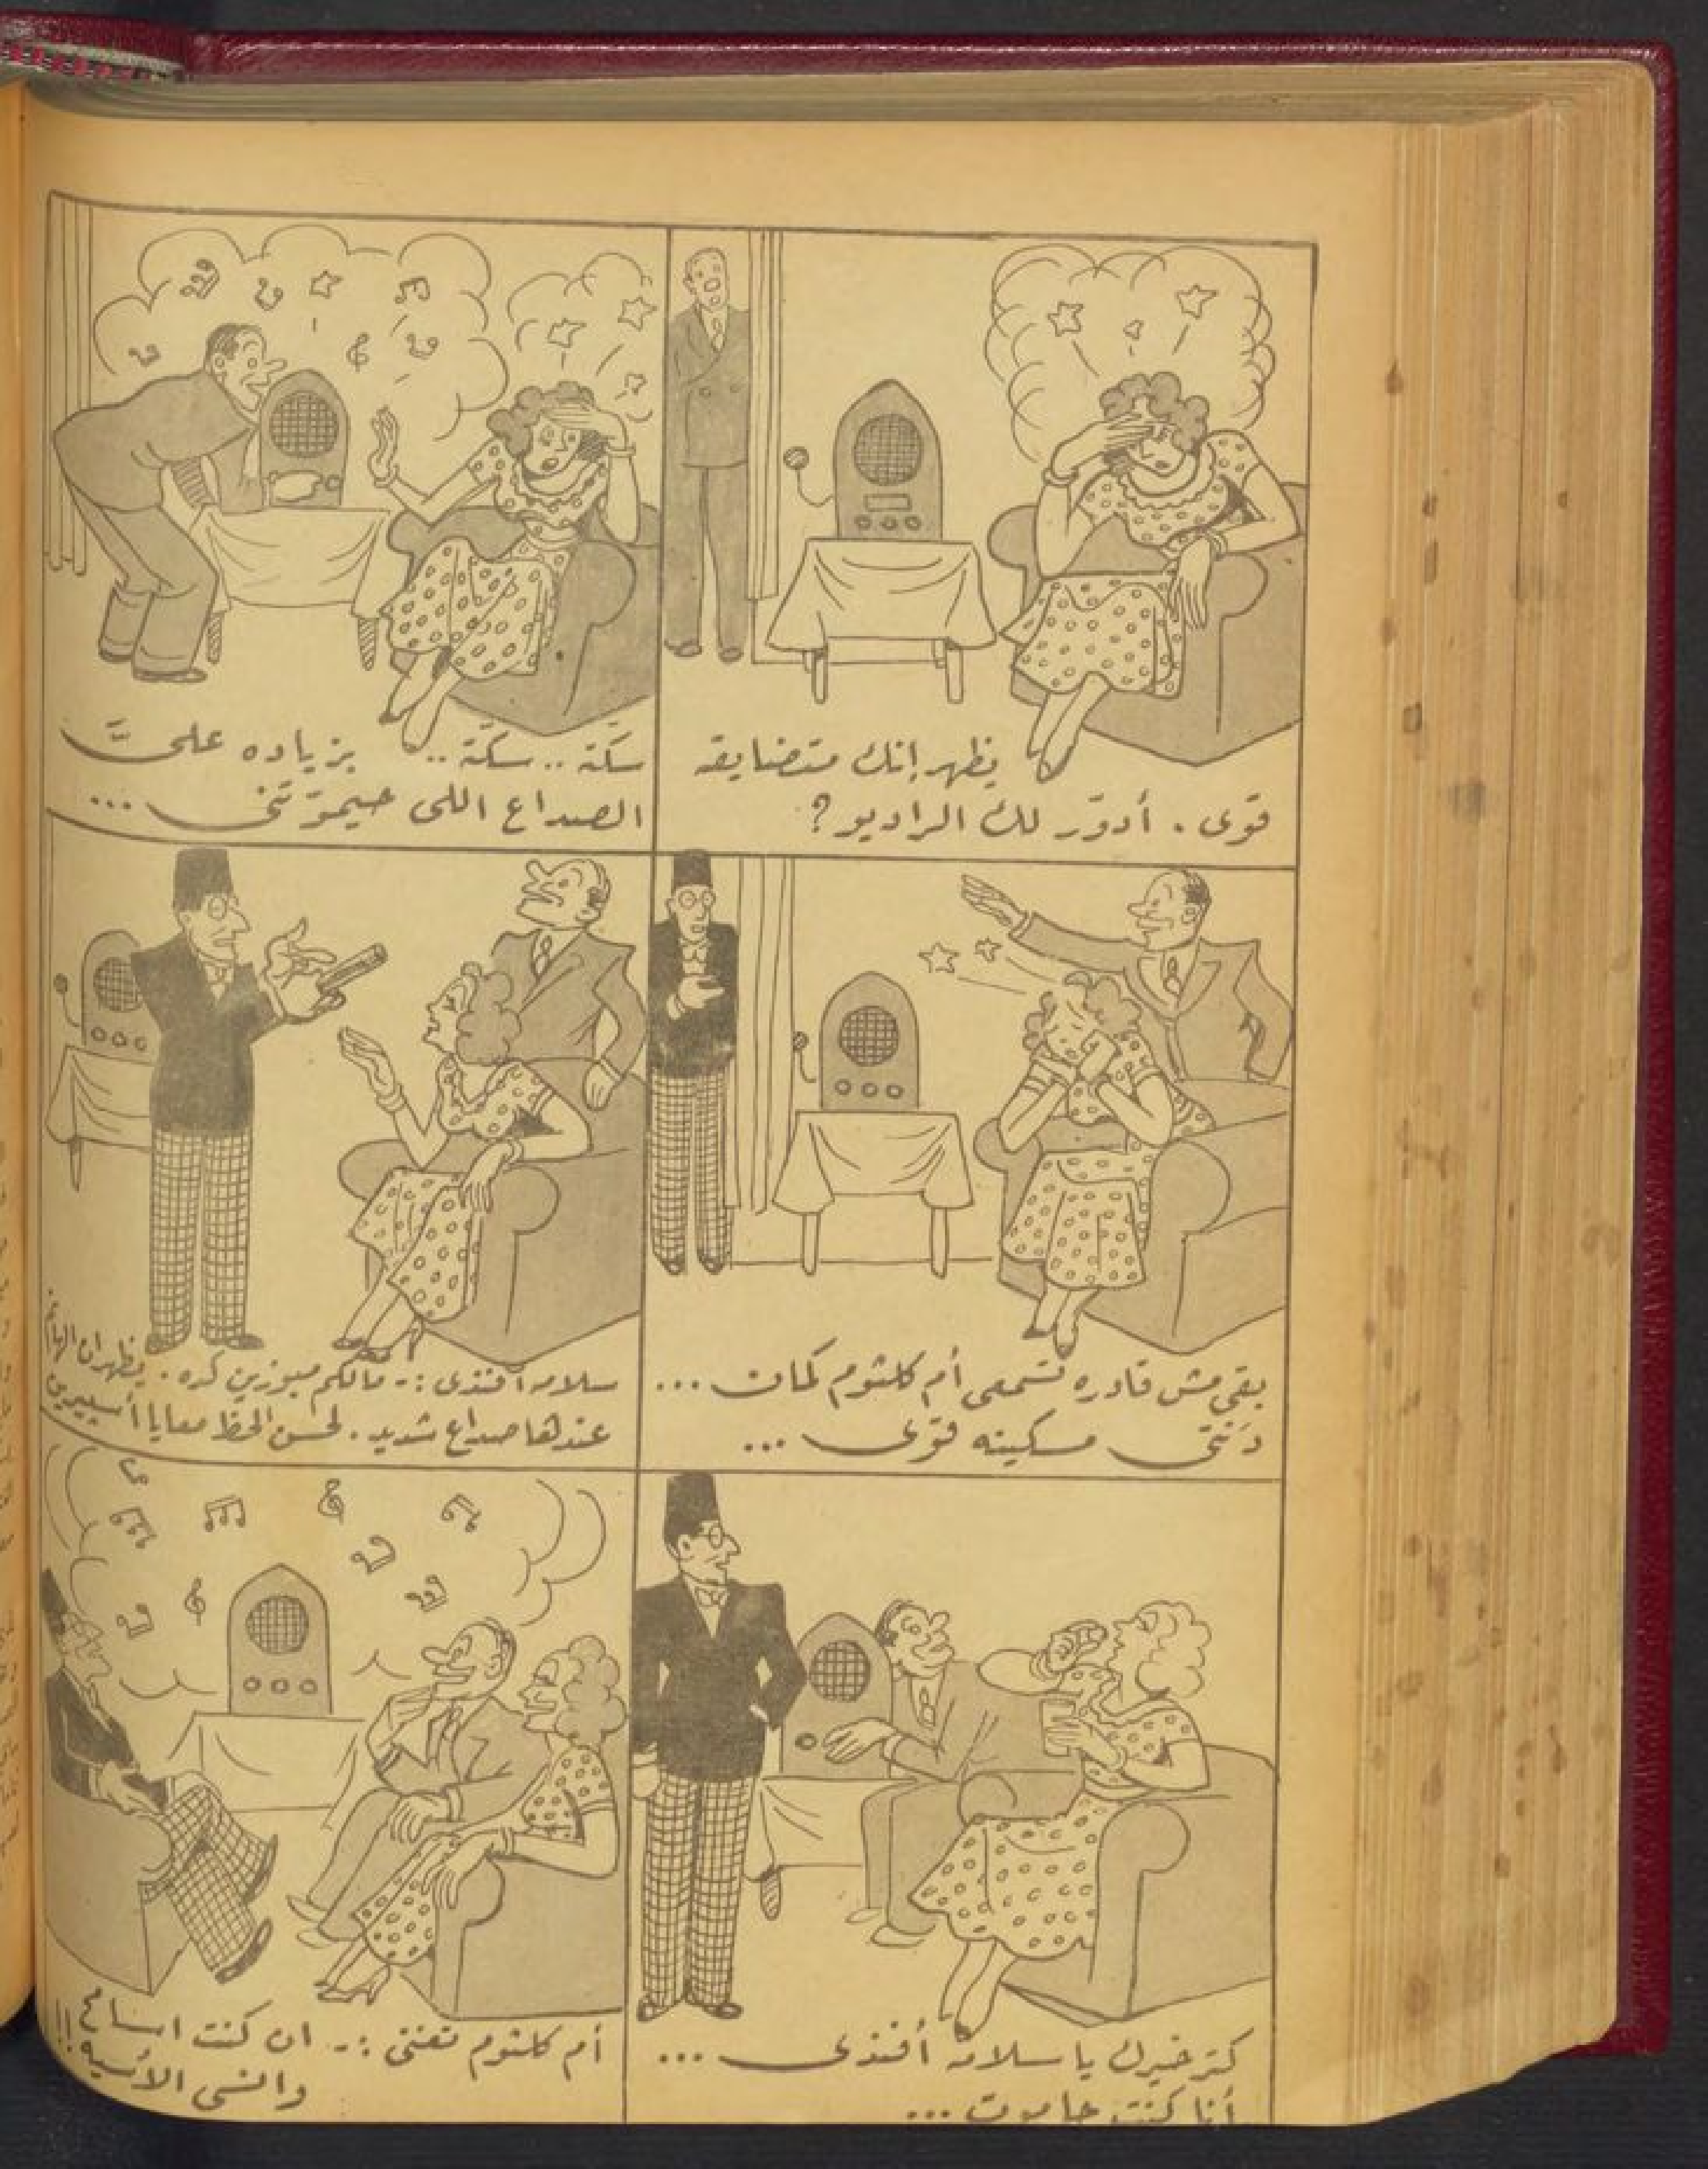 يظهر إنك متضايقه
قوى . أدوّر لك الراديو ؟
سكّتة .. سكّتة .. بزياده علىّ
الصداع اللى حيموّتنى ...
بقى مش قادره تسمعى أم كلثوم كمان ...
دَنتى مسكينه قوى ...
سلامه أفندى :- مالكم مبوزين كده . يظهر ان الهانم
عندها صداع شديد . لحسن الحظ معايا أسبيرين
كتر خيرك يا سلامه أفندى ...
أنا كنت حاموت ...
أم كلثوم تغنى :- ان كنت اسامح
وانسى الأسيه !!